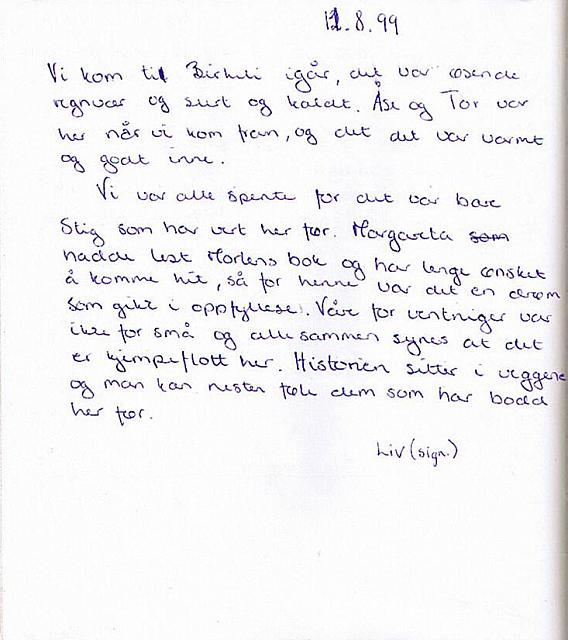 12.8.99
Vi kom til Birkeli igår, det var øsende
regnvær og surt og kaldt. Åse og Tor var
her når vi kom fram, og det det var varmt
og godt inne.
Vi var alle spente for det var bare
Stig som har vert her før. Margareta som
hadde lest Mortens bok og har lenge ønsket
å komme hit, så for henne var det en drøm
som gikk i oppfyllese. Våre for ventniger var
ikke for små og alle sammen synes at det
er kjempeflott her. Historien sitter i veggene
og man kan nesten føle dem som har bodd
her før.
Liv (sign.)